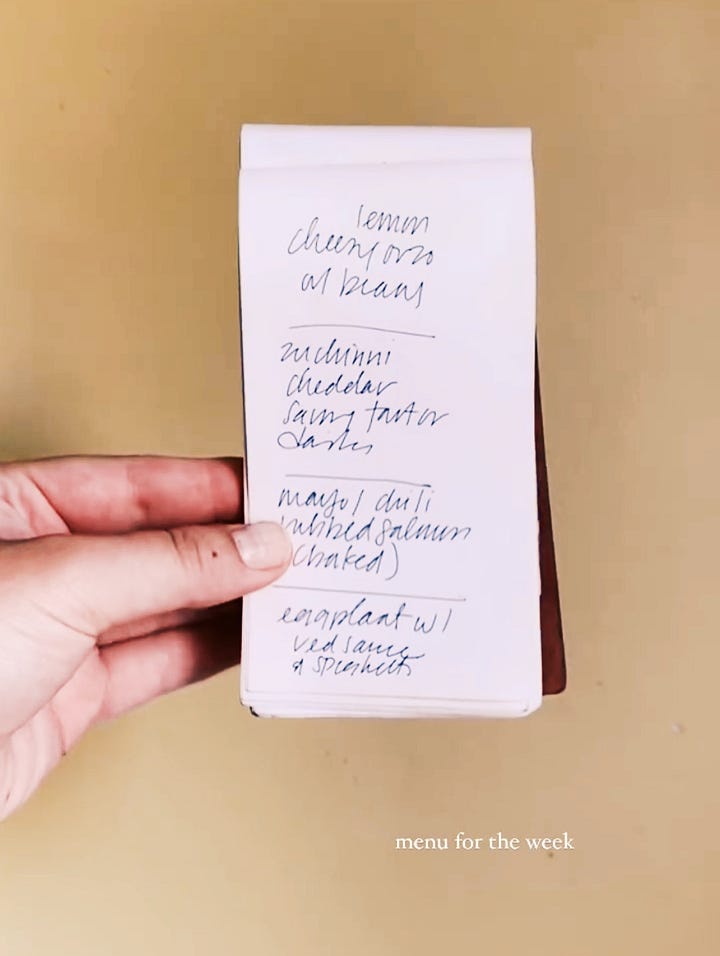 lemon
cheesy orzo
w/ beans
zuchinni
cheddar
savory tart or
mayo / chili
rubbed salmon
(baked)
eggplant w/
red sauce
& spaghetti
menu for the week